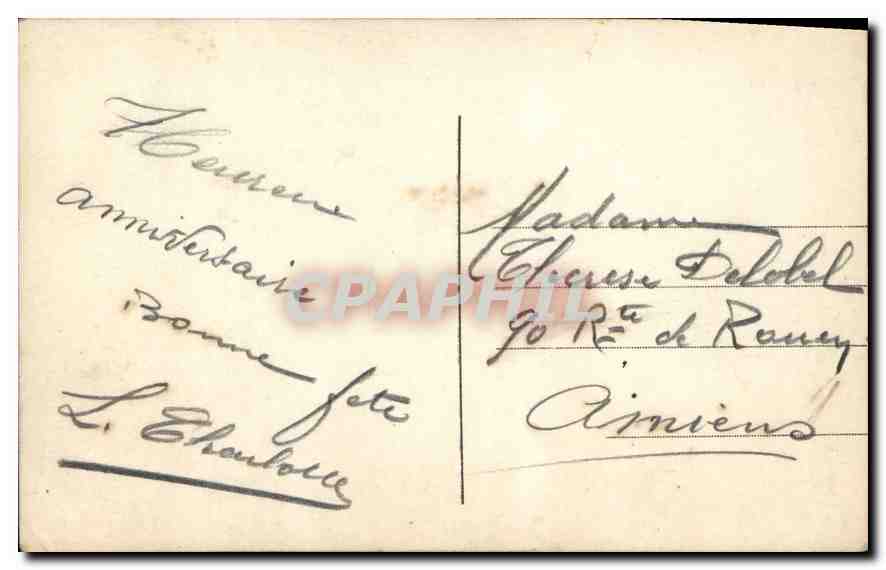 Heureux
anniversaire
Bonne fete
L. Charlotte
Madame
Therese Delobel
90 Rte de Rouen
Amiens
CPAPHIL